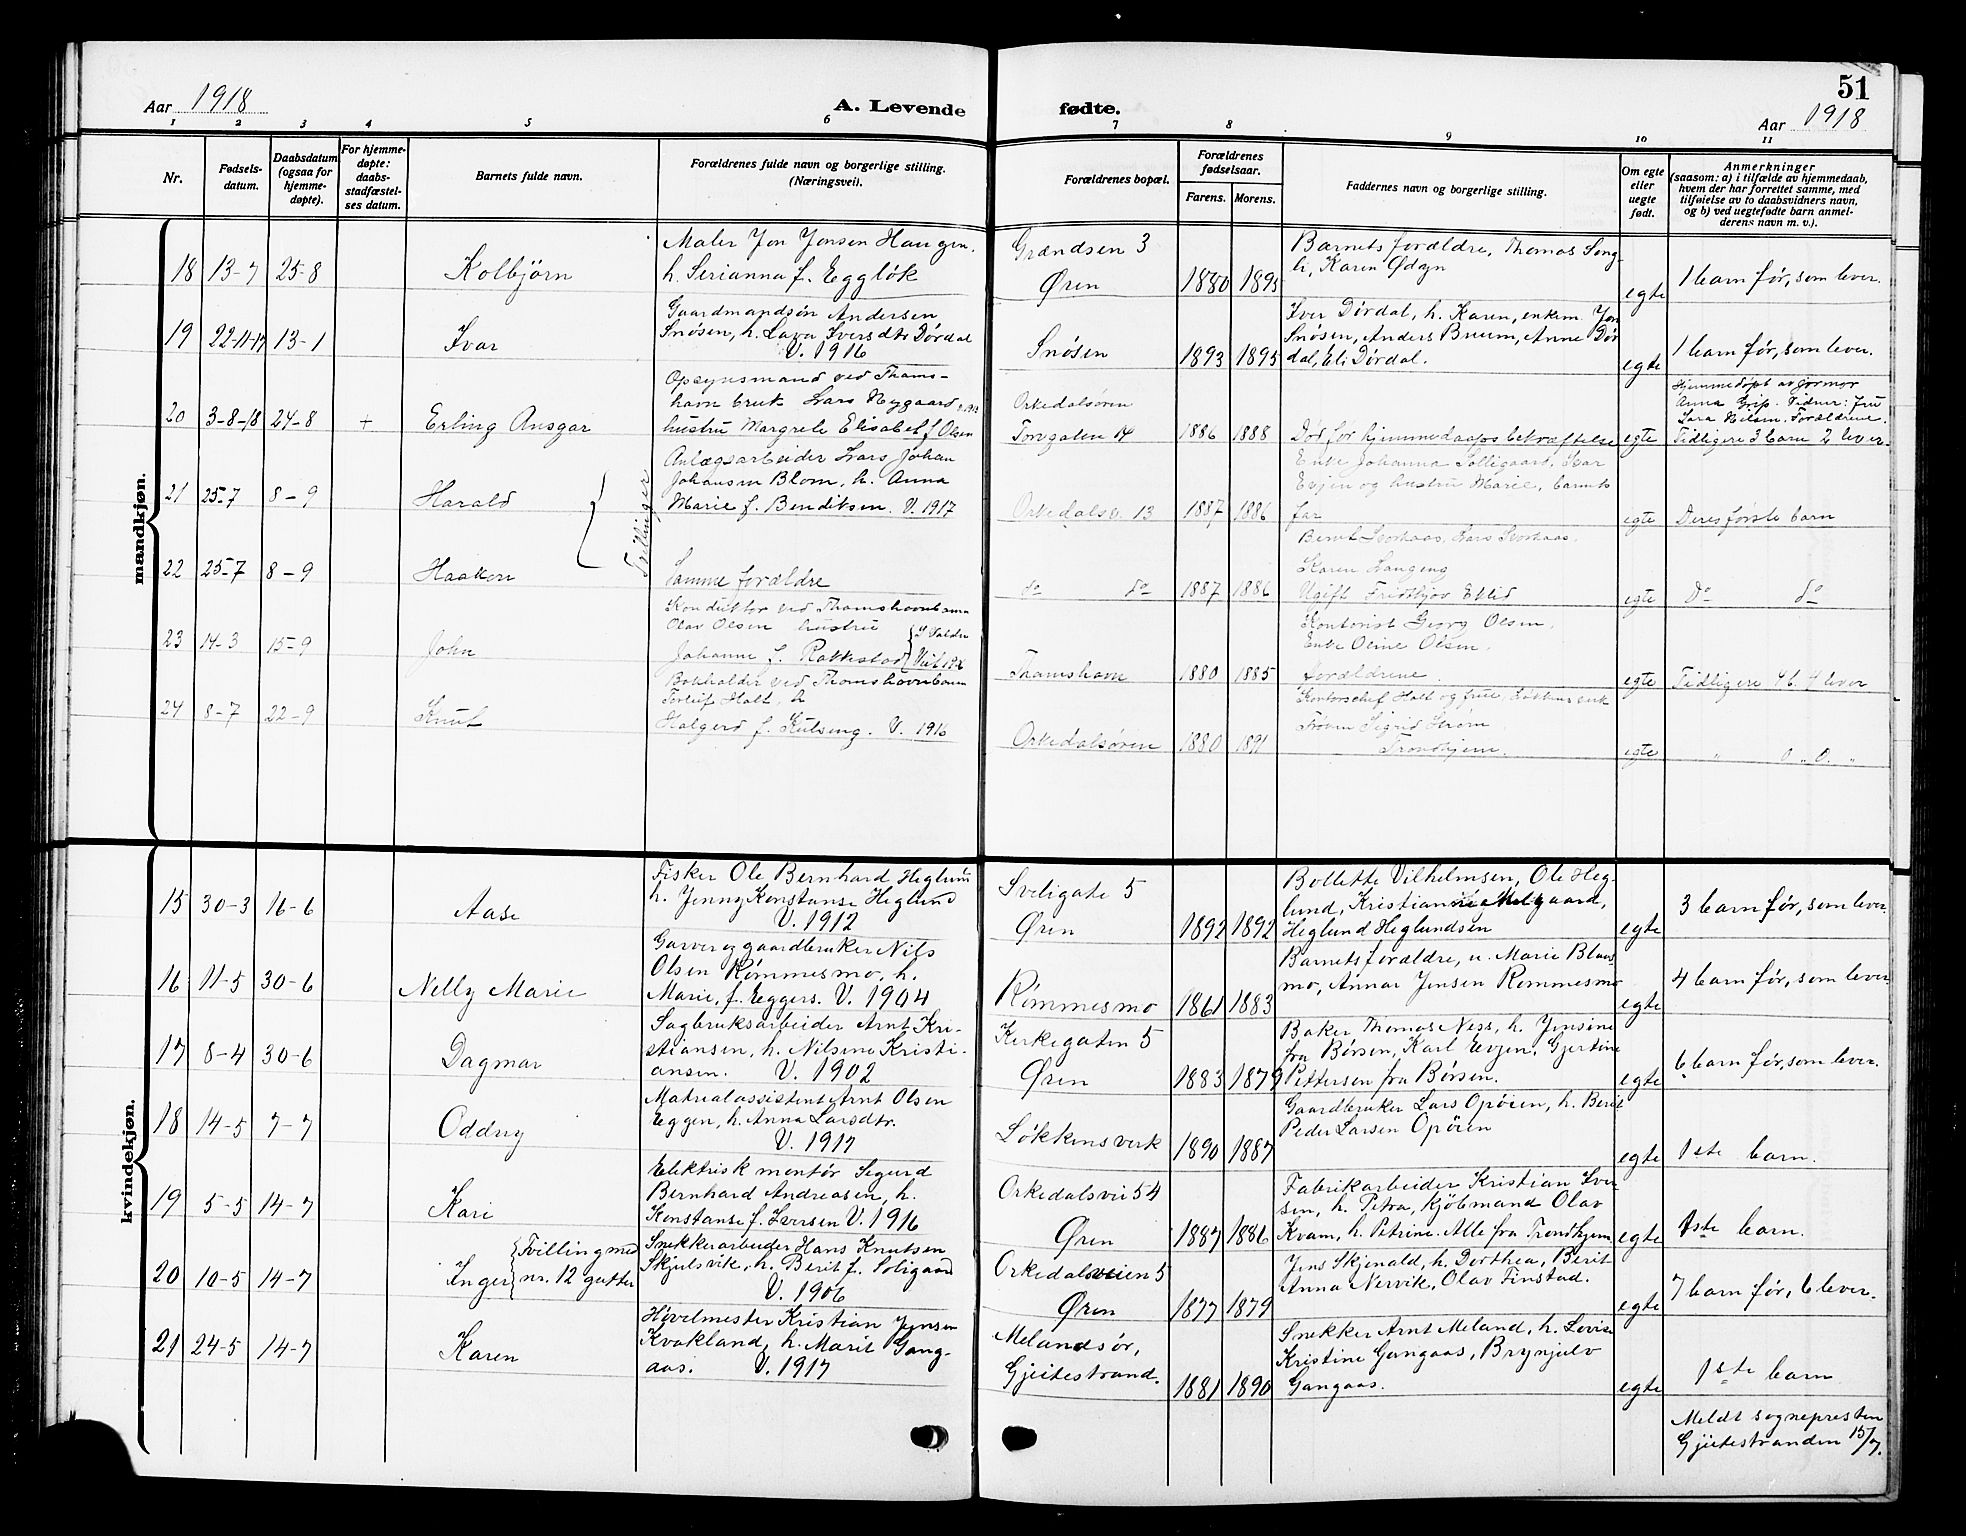 51
Aar 1918
A. Levende fødte.
Aar 1918
1 2 3 4 5 6 7 8 9 10 11
Nr.
Fødsels-
datum.
Daabsdatum
(ogsaa for
hjemme-
døpte).
For hjemme-
døpte:
daabs-
stadfæstel-
ses datum.
Barnets fulde navn.
Forældrenes fulde navn og borgerlige stilling.
(Næringsvei).
Forældrenes bopæl.
Forældrenes
fødselsaar.
Farens. Morens.
Faddernes navn og borgerlige stilling.
Om egte
eller
uegte
født.
Anmerkninger
(saasom: a) i tilfælde av hjemmedaab,
hvem der har forrettet samme, med
tilføielse av to daabsvidners navn,
og b) ved uegtefødte barn anmel-
derens navn m. v.).
mandkjøn.
18 13-7 25-8 Kolbjörn
Maler Jon Jonsen Haugen.
h. Serianna f. Egglök
Grændsen 3
Øren
1880 1895
Barnets forældre, Thomas Song-
li, Karen Ødegn
egte
1 barn før, som lever.
19 22-11-17 13-1 Ivar
Gaardmandsön Andersen
Snösen, h. Lava Iversdtr Dördal
V. 1916
Snösen
1893 1895
Iver Dørdal, h. Karen, enkem. Jon
Snösen, Anders Bruum, Anne Dör
dal, Eli Dördal.
egte
1 barn før, som lever.
20 3-8-18 24-8 + Erling Ansgar
Opsynsmand ved Thams-
havn bruk Lars Nygaard
hustru Margrete Elisabet f. Olsen
Orkedalsören
Torvgaten 14
1886 1888
Död før hjemmedaaps bekræftelse
egte
Hjemmedöpt av jormor
Anna Grip. Vidner: Fru
Lara Nilsen. Forældrene.
Tidligere 3 barn 2 lever.
21 25-7 8-9 Harald
Tvillinger
Anlægsarbeider Lars Johan
Johansen Blom, h. Anna
Marie f. Benditsen. V. 1917
Orkedalsv. 13
1887 1886
Enke Johanna Solligaard, Ivar
Evjen og hustru Marie, barnets
far
egte
Deres første barn
22 25-7 8-9 Haakon
Samme forældre
do do
1887 1886
Berit Storhaas, Lars Storhaas,
Karen Langeng
Ugift Fridthjov Eklid
egte
Do do
23 14-3 15-9 John
Konduktör ved Thamshavnbana
Olav Olsen hustru
Johanne f. Rakkestad
Thamshavn
1880 1885
Kontorist Georg Olsen.
Enke Oline Olsen.
Forældrene.
egte
Tidligere 4 b. 4 lever
24 8-7 22-9 Knut
Bokholder ved Thamshavnbanen
Torleif Holt, h
Halgerd f. Kulseng. V. 1916
Orkedalsören
1880 1891
Kontorchef Holt og frue, Løkkens verk
Frøken Sigrid Strøm
Trondhjem.
egte
" 0 " 0. "
kvindekjøn.
15 30-3 16-6 Aase
Fisker Ole Bernhard Heglund
h. Jenny Konstanse Heglund
V. 1912
Sveligate 5
Øren
1892 1892
Bollette Vilhelmsen, Ole Heg-
lund, Kristianne Melgaard,
Heglund Heglundsen
egte
3 barn før, som lever.
16 11-5 30-6 Nelly Marie
Garver og gaardbruker Nils
Olsen Rømmesmo, h.
Marie, f. Eggers. V. 1904
Rømmesmo
1861 1883
Barnets forældre, u. Marie Blaas
mo, Annar Jensen Rommesmo
egte
4 barn før, som lever
17 8-4 30-6 Dagmar
Sagbruksarbeider Arnt Kri-
stiansen, h. Nilsine Kristi-
ansen. V. 1902
Kirkegaten 5
Øren
1883 1879
Baker Thomas Ness, h. Jensine
fra Børsen, Karl Evjen, Gjertine
Pettersen fra Børsen.
egte
6 barn før, som lever.
18 14-5 7-7 Oddny
Materialassistent Arnt Olsen
Eggen, h. Anna Larsdtr.
V. 1917
Løkkens verk
1890 1887
Gaardbruker Lars Opøien, h. Berit
Peder Larsen Opøien
egte
1ste barn.
19 5-5 14-7 Kari
Elektrisk montør Sigurd
Bernhard Andreasen, h.
Konstanse f. Iversen V. 1916
Orkedalsvei 54
Øren
1887 1886
Fabrikarbeider Kristian Iver-
sen, h. Petra, Kjöbmand Olav
Kvam, h. Petrine. Alle fra Trondhjem
egte
1ste barn.
20 10-5 14-7 Inger
Tvilling med
nr. 12 gutter
Snekkerarbeider Hans Knutsen
Skjulsvik, h. Berit f. Soligaard
V. 1906
Orkedalsveien 5
Øren
1877 1879
Jens Skjenald, h. Dorthea, Berit
Anna Nervik, Olav Finstad.
egte
7 barn før, 6 lever.
21 24-5 14-7 Karen
Høvelmester Kristian Jensen
Kvakland, h. Marit Gang-
aas. V. 1917
Melandsør,
Gjeitestrand.
1881 1890
Snekker Arnt Meland, h. Lovise
Kristine Gangaas, Brynjulv
Gangaas.
egte
1ste barn
Meldt sognepresten
Gjeitestranden 15/7.